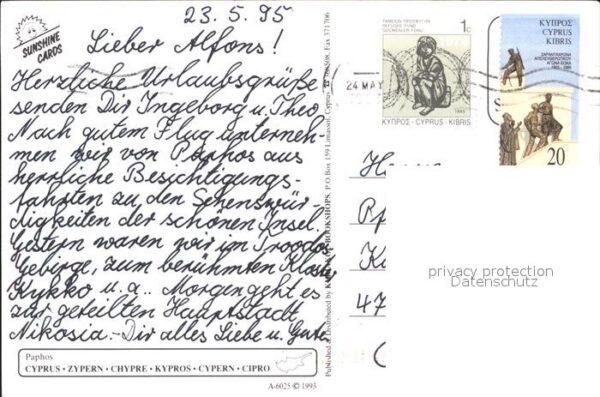 23.5.95
SUNSHINE
CARDS
Lieber Alfons!
Herzliche Urlaubsgrüße
senden Dir Ingeborg u. Theo
Nach gutem Flug unterneh-
men wir von Paphos aus
herrliche Besichtigungs-
fahrten zu den Sehenswür-
digkeiten der schönen Insel.
Gestern waren wir im Troodos
Gebirge, zum berühmten Kloster
Kykko u.a.. Morgen geht es
zur geteilten Hauptstadt
Nikosia.- Dir alles Liebe u. Gute,
Paphos
CYPRUS · ZYPERN · CHYPRE · KYPROS · CYPERN · CIPRO
A-6025 © 1993
Published & Distributed by BOOKSHOPS, P.O Box 159 Limassol, Cyprus Fax 371706
1c
1974
1995
ΚΥΠΡΟΣ · CYPRUS · KIBRIS
24 MAY
ΚΥΠΡΟΣ
CYPRUS
KIBRIS
20
47
privacy protection
Datenschutz